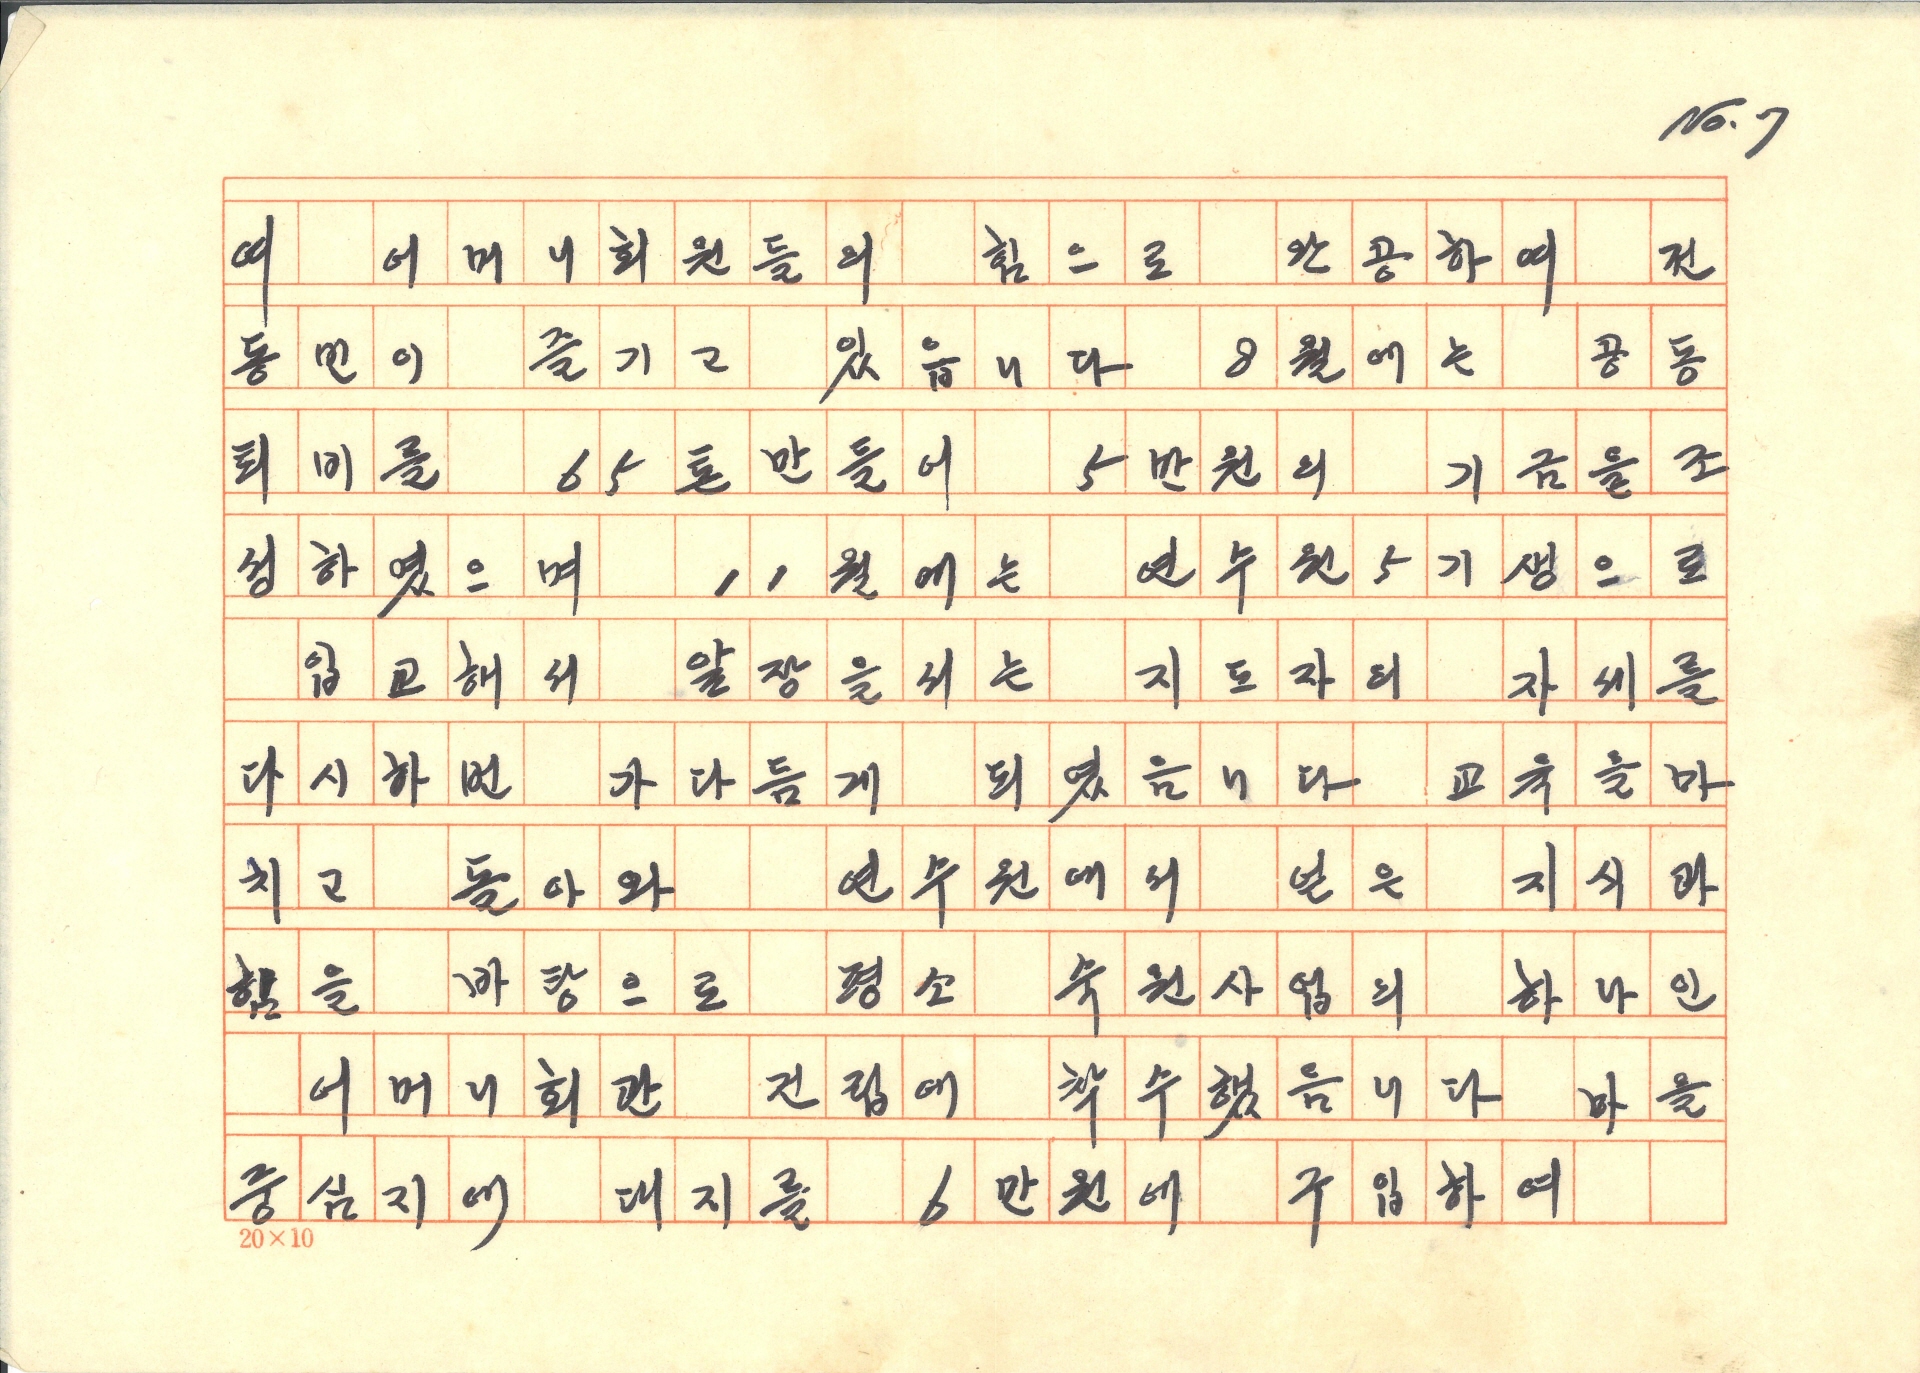 No. 7
여 어머니회원들의 힘으로 완공하여 전
동민이 즐기고 있읍니다 8월에는 공동
퇴비를 65톤만들어 5만원의 기금을조
성하였으며 11월에는 연수원5기생으로
입교해서 앞장을서는 지도자의 자세를
다시하번 가다듬게 되였음니다 교육을마
치고 돌아와 연수원에서 얻은 지식과
힘을 바탕으로 평소 숙원사업의 하나인
어머니회관 건립에 착수했음니다 마을
중심지에 대지를 6만원에 구입하여
20×10